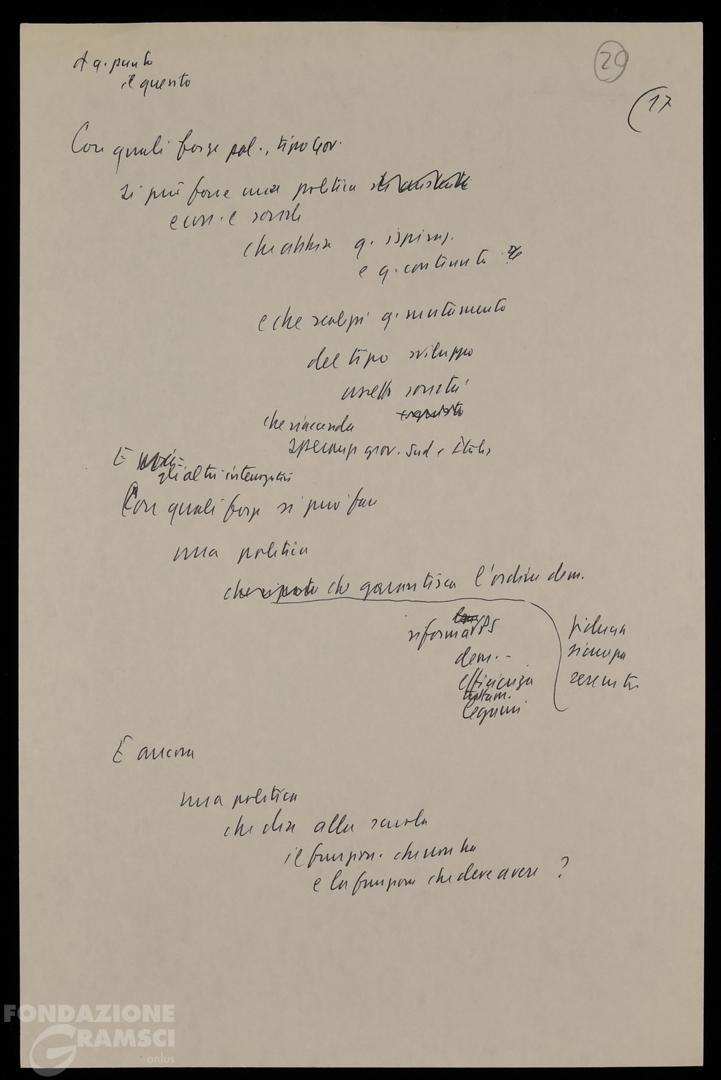 A q. punto
il quesito
20
(17
Con quali forze pol., tipo Gov.
si può fare una politica
econ. e sociale
che abbia q. ispiraz.
e q. contenuti
e che realizzi q. mutamento
del tipo sviluppo
assetto società
che riaccenda
speranza giov. Sud e Italia
E
gli altri interrogativi
Con quali forze si può fare
una politica
che garantisca l'ordine dem.
riforma PS
dem.
efficienza
legami
fiducia
sicurezza
serenità
E ancora
una politica
che dia alla scuola
il funzion. che non ha
e la funzione che deve avere ?
FONDAZIONE
GRAMSCI
onlus